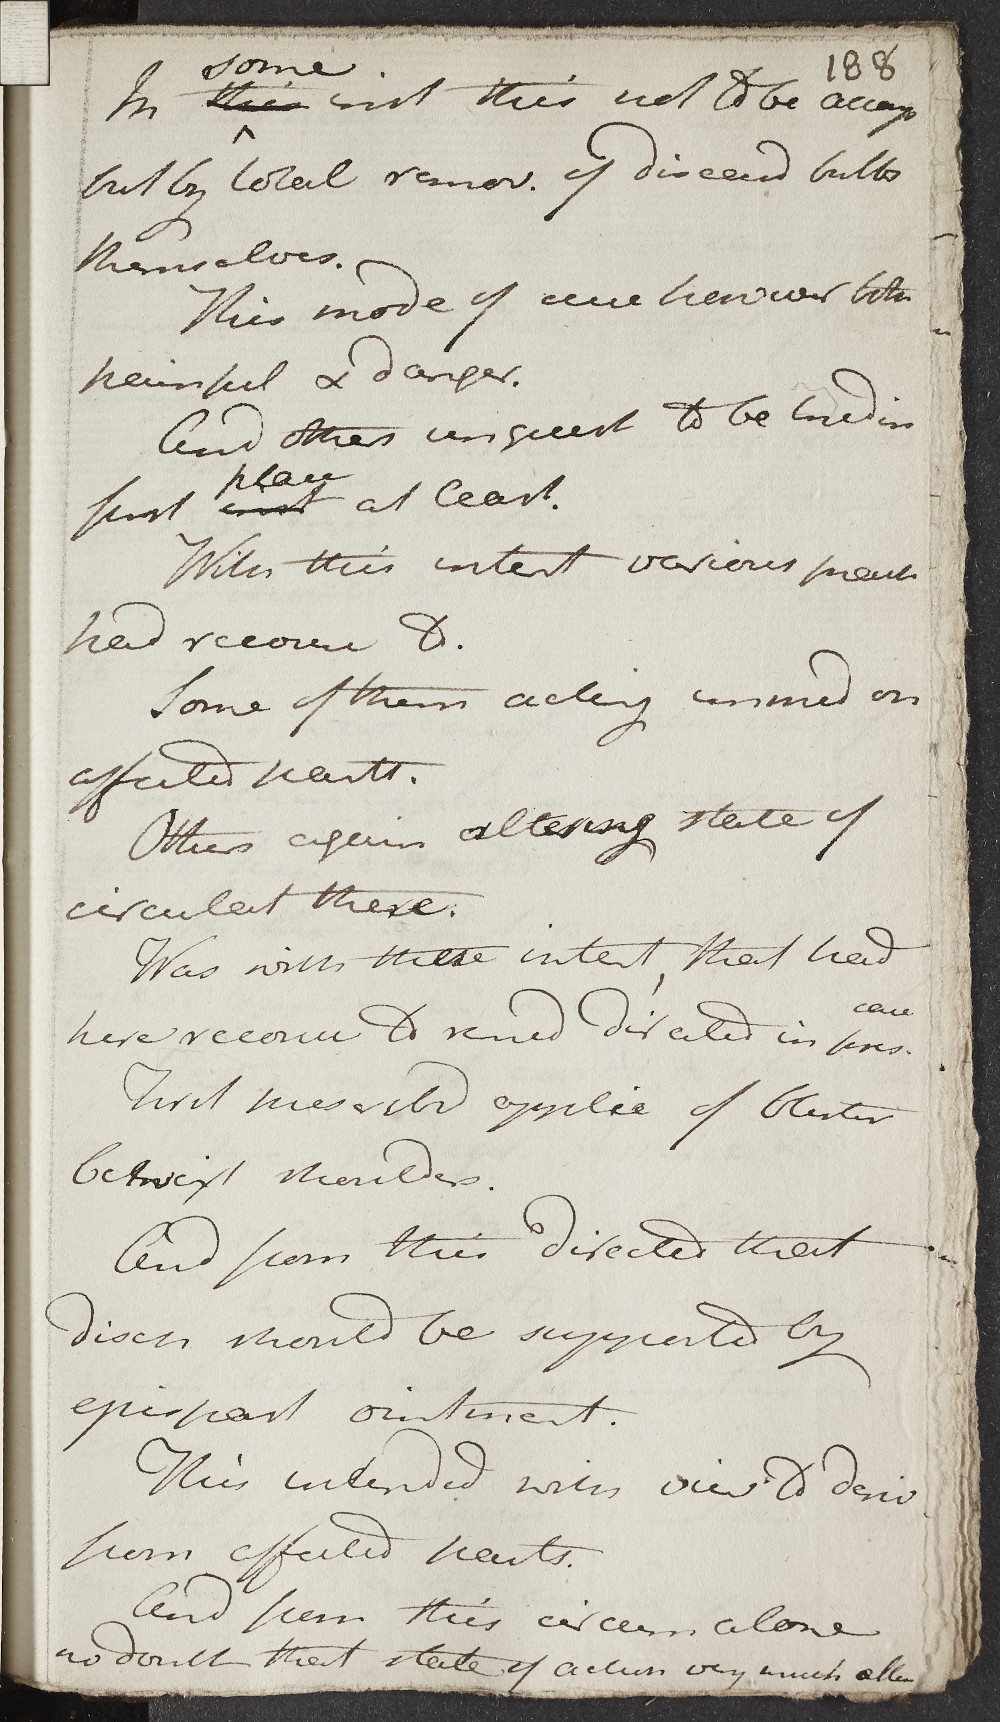 188
some
In this inst this not to be accomp
but by total remov. of diseasd bulbs
themselves.
This mode of cure however both
painful & danger.
And others unquest to be tried in
first inst place at least.
With this intent various pract
had recourse to.
Some of them acting immed on
affected parts.
Others again altering state of
circulat there.
Was with these intent, that had
here recourse to remed directed in pres. case
First prescribd applic of blister
betwixt shoulders.
And from this directed that
disch should be supported by
epispast ointment.
This intended with view to deriv
from affected parts.
And from this circum alone
no doubt that state of action very much alter